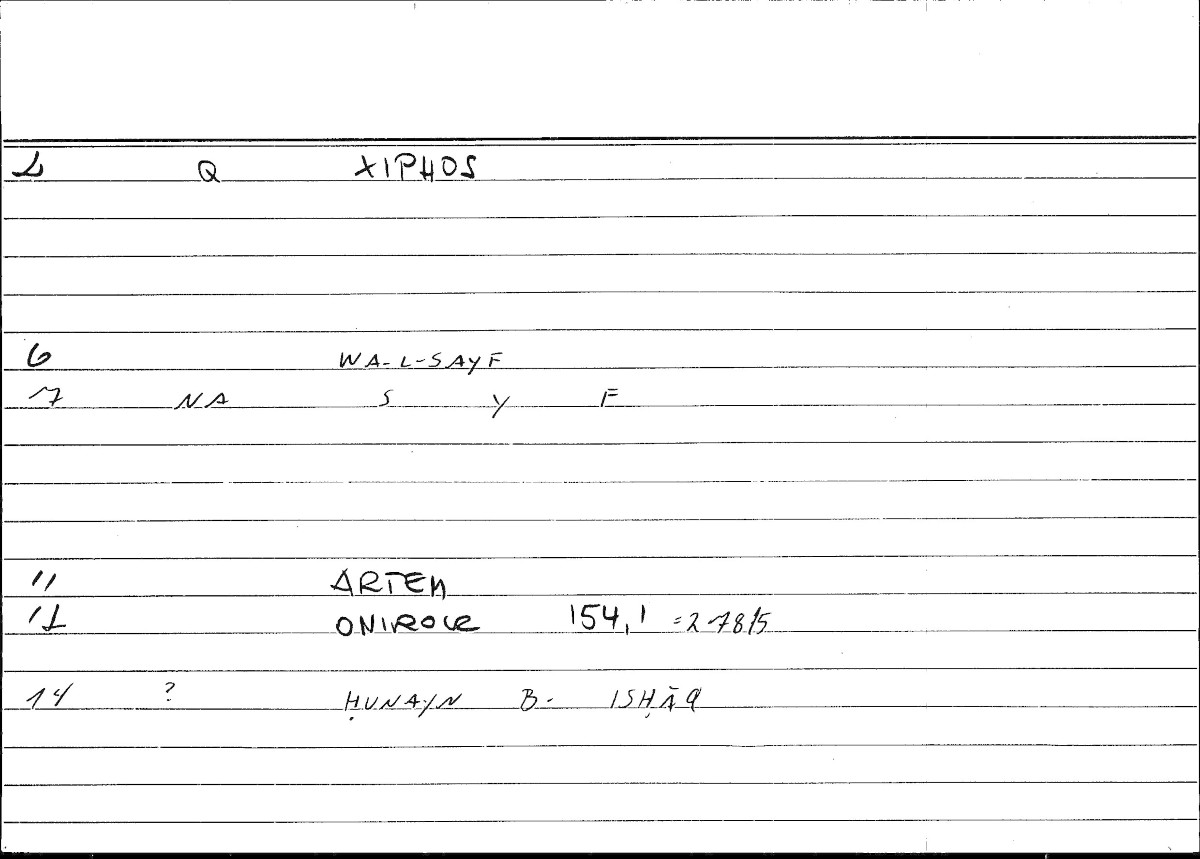 2 Q XIPHOS
6 WA-L-SAYF
7 NA S Y F
11 ARTEM
12 ONIROCR 154,1 =278/5
14 ? ḤUNAYN B. ISḤĀQ